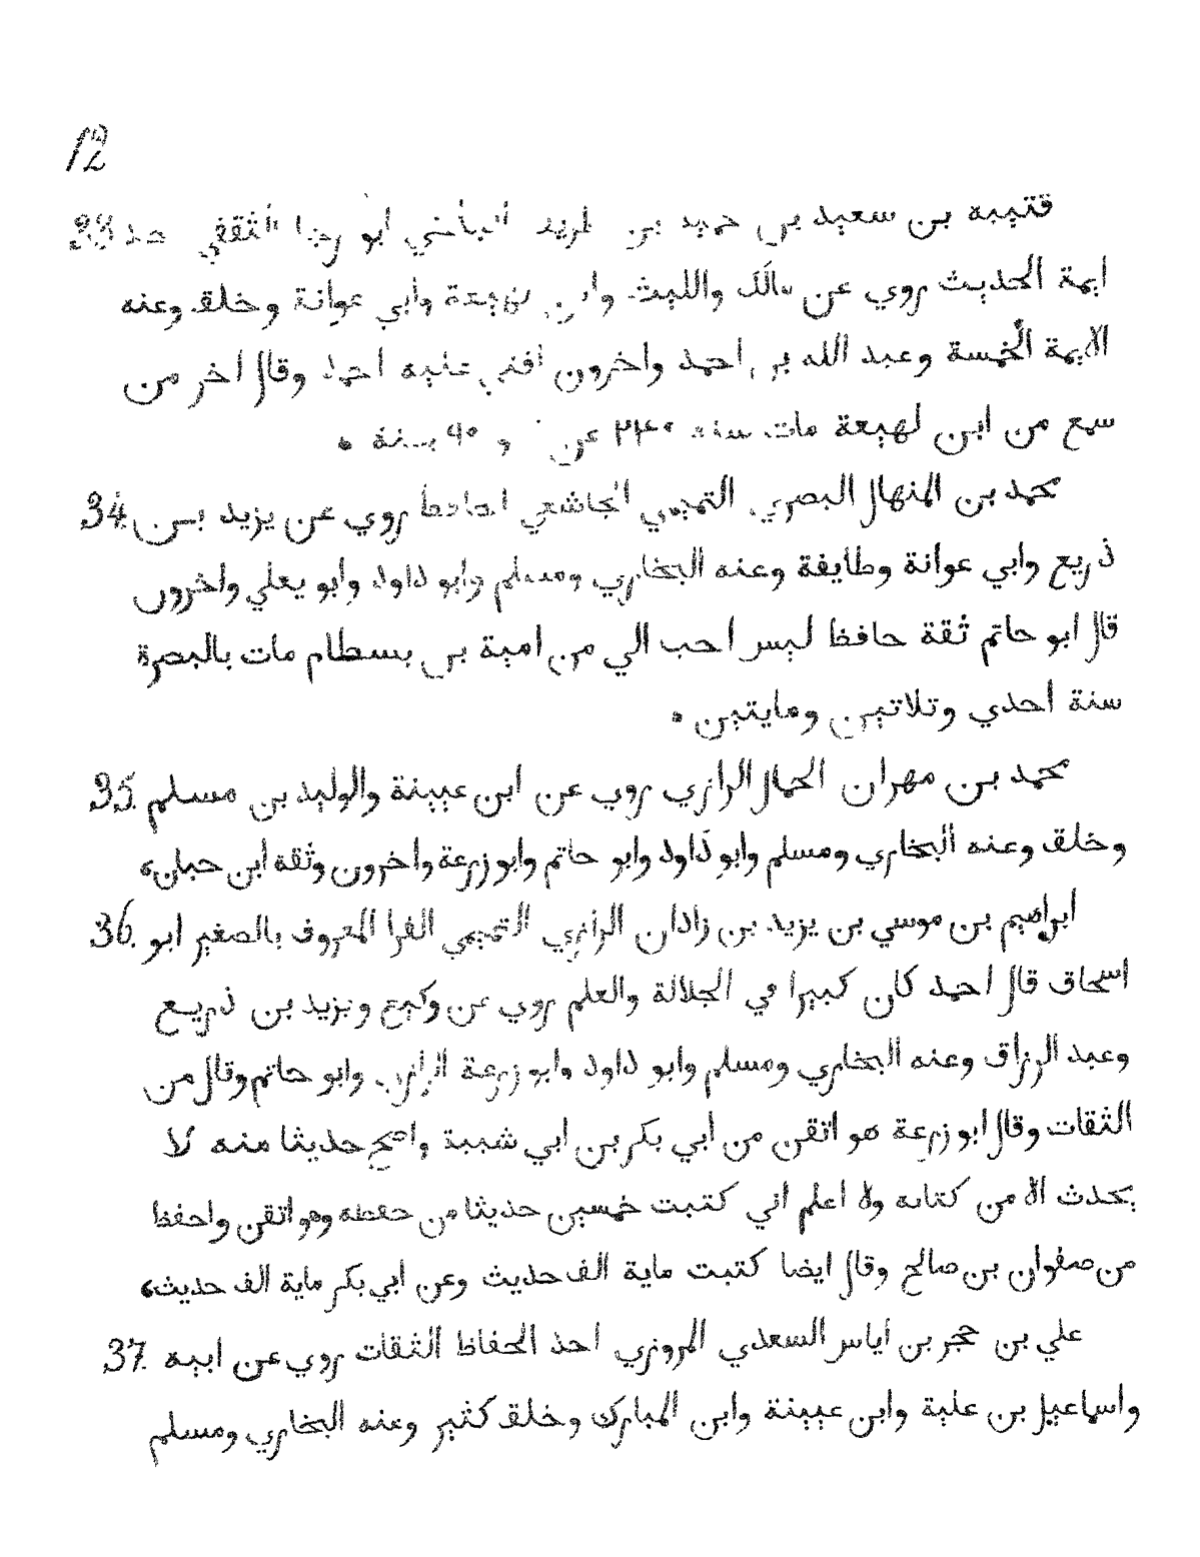 12
قتيبه بن سعيد بن حميد بن طريف البلخي ابو رجا الثقفي احد 33.
ايمة الحديث روي عن مالك والليث وابن لهيعة وابي عوانة وخلق وعنه
الايمة الخمسة وعبد الله بن احمد واخرون اثني عليه احمد وقال اخر من
سمع من ابن لهيعة مات سنة ٢٤٠ عن ٩٠ سنة •
محمد بن المنهال البصري التميمي المجاشعي الحافظ روي عن يزيد بن 34.
ذريع وابي عوانة وطايفة وعنه البخاري ومسلم وابو داود وابو يعلي واخرون
قال ابو حاتم ثقة حافظ ليس احب الي من امية بن بسطام مات بالبصرة
سنة احدي وتلاتين ومايتين •
محمد بن مهران الحمال الرازي روي عن ابن عيينة والوليد بن مسلم 35.
وخلق وعنه البخاري ومسلم وابو داود وابو حاتم وابو زرعة واخرون وثقه ابن حبان،
ابراهيم بن موسي بن يزيد بن زادان الرازي التميمي الفرا المعروف بالصغير ابو 36.
اسحاق قال احمد كان كبيرا في الجلالة والعلم روي عن وكيع ويزيد بن ذريع
وعبد الرزاق وعنه البخاري ومسلم وابو داود وابو زرعة الرازي وابو حاتم وقال من
الثقات وقال ابو زرعة هو اتقن من ابي بكر بن ابي شيبة واصح حديثا منه لا
يحدث الا من كتابه ولا اعلم اني كتبت خمسين حديثا من حفظه وهو اتقن واحفظ
من صفوان بن صالح وقال ايضا كتبت ماية الف حديث وعن ابي بكر ماية الف حديث،
علي بن حجر بن اياس السعدي المروزي احد الحفاظ الثقات روي عن ابيه 37.
واسماعيل بن علية وابن عيينة وابن المبارك وخلق كثير وعنه البخاري ومسلم